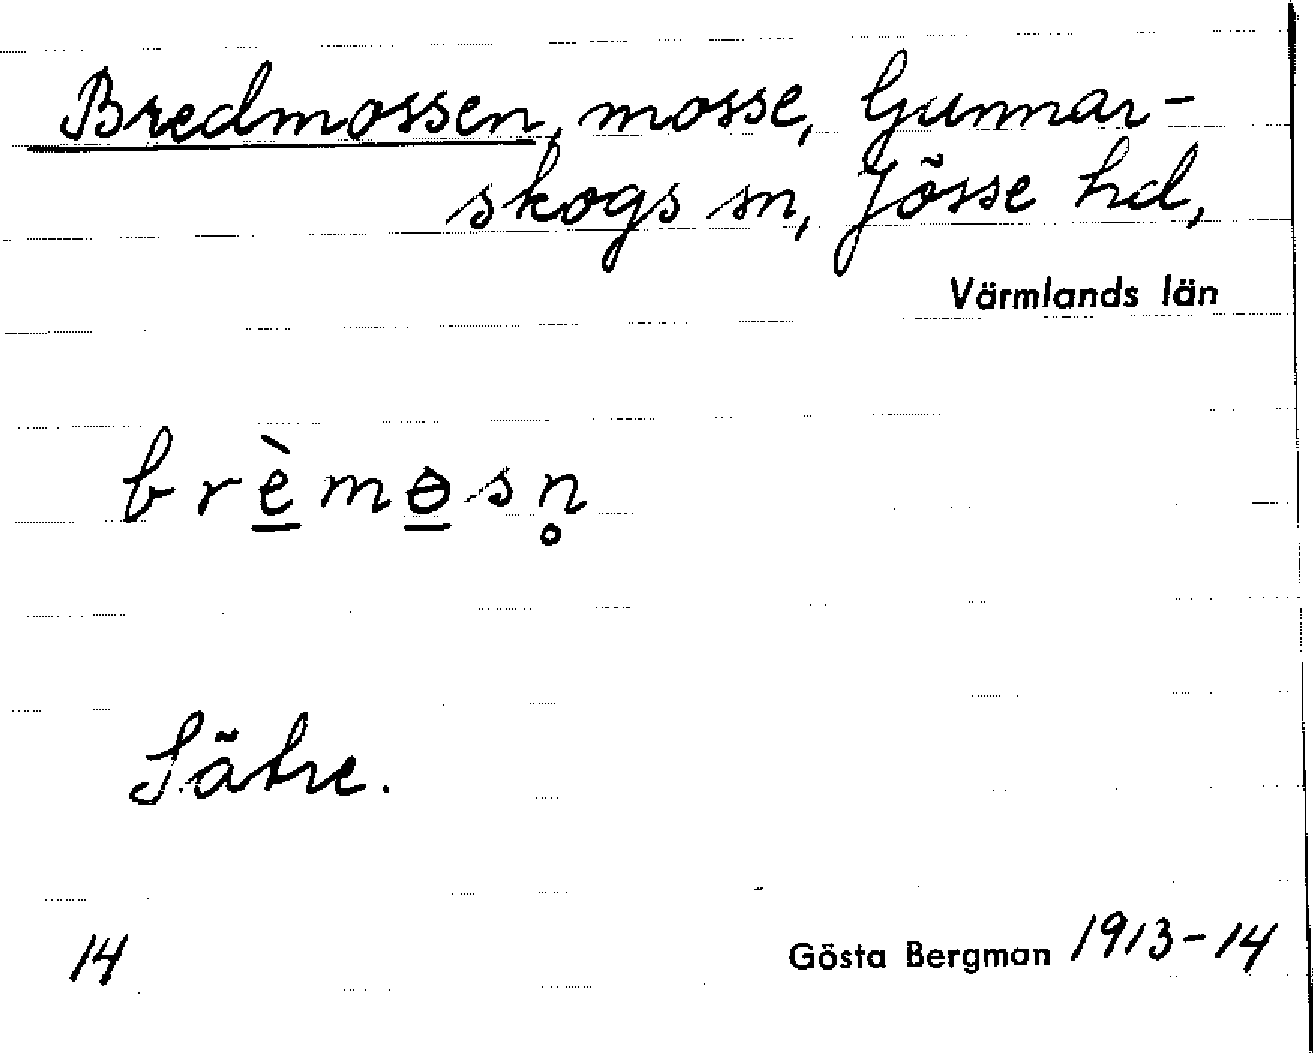 Bredmossen, mosse, Gunnar-
skogs sn, Jösse hd,
Värmlands län
br&#x65;̲̀mɵ̲sn̥
Sätre.
14
Gösta Bergman 1913-14